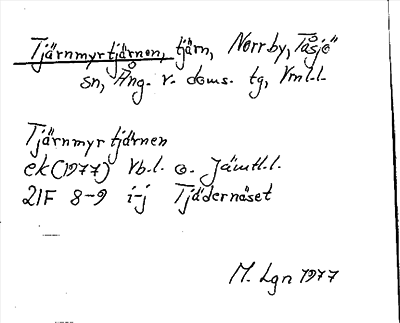 Tjärnmyrtjärnen, tjärn, Norrby, Tåsjö
sn, Ång. v. doms. tg, Vml.l.
Tjärnmyrtjärnen
ek (1977) Vb.l. o. Jämtl.l.
21F 8-9 i-j Tjädernäset
M. Lgn 1977